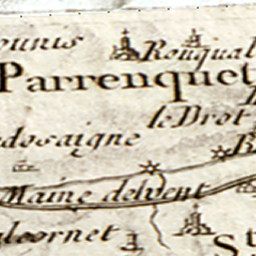 ounis
Rouqual
Parrenquet
le Drot
dosaigne
B
Maine delvent
alcornet
St